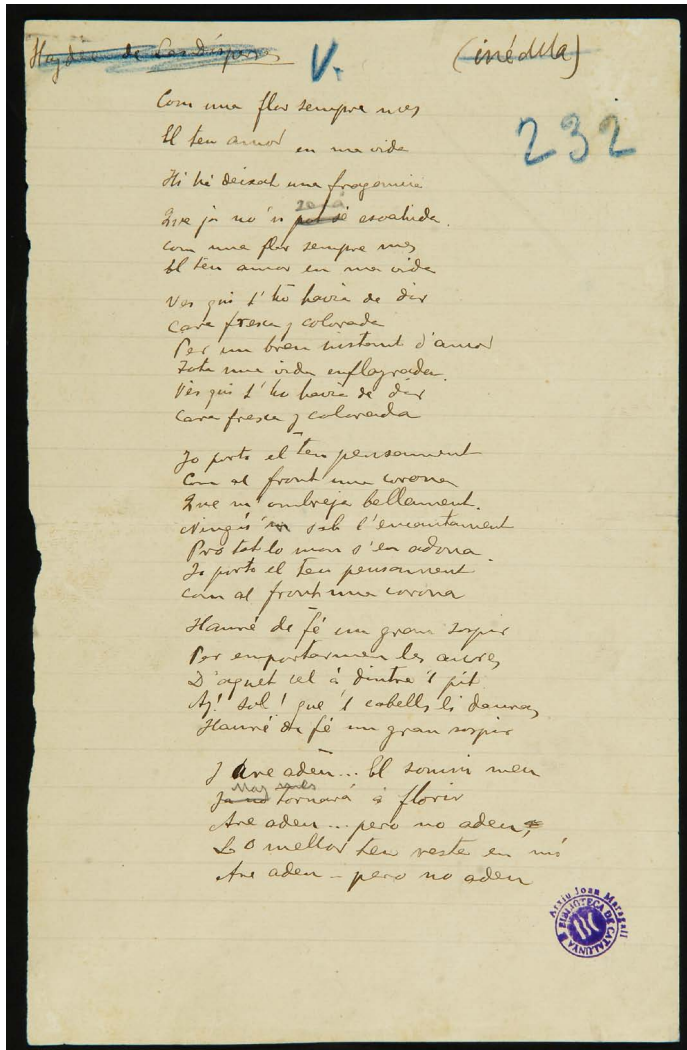 Haydée de les Disperses
V.
(inédita)
232
Com una flor sempre mes
El teu amor en ma vida
Hi há deixat una fragancia
Que ja no 's será esvahida.
Com una flor sempre mes
El teu amor en ma vida
Ves qui t'ho havia de dir
Cara fresca y colorada
Per un breu instant d'amor
Tota una vida enflayrada.
Ves qui t'ho havia de dir
Cara fresca y colorada
Jo porto el teu pensament
Com al front una corona
Que m'ombreja bellament.
Ningú sab l'encantament
Pró tot lo mon s'en adona.
Jo porto el teu pensament
Com al front una corona
Hauré de fé un gran sospir
Per emportarmen les aures
D'aquet cel á dintre 'l pit
Ay! Sol! que 'l cabells li dauras
Hauré de fé un gran sospir
Y are adeu... El somni meu
May mes
Ja no tornará á florir
Are adeu... pero no adeu,
Lo mellor teu reste en mi
Are adeu - pero no adeu
Arxiu Joan Maragall
BIBLIOTECA DE CATALUNYA